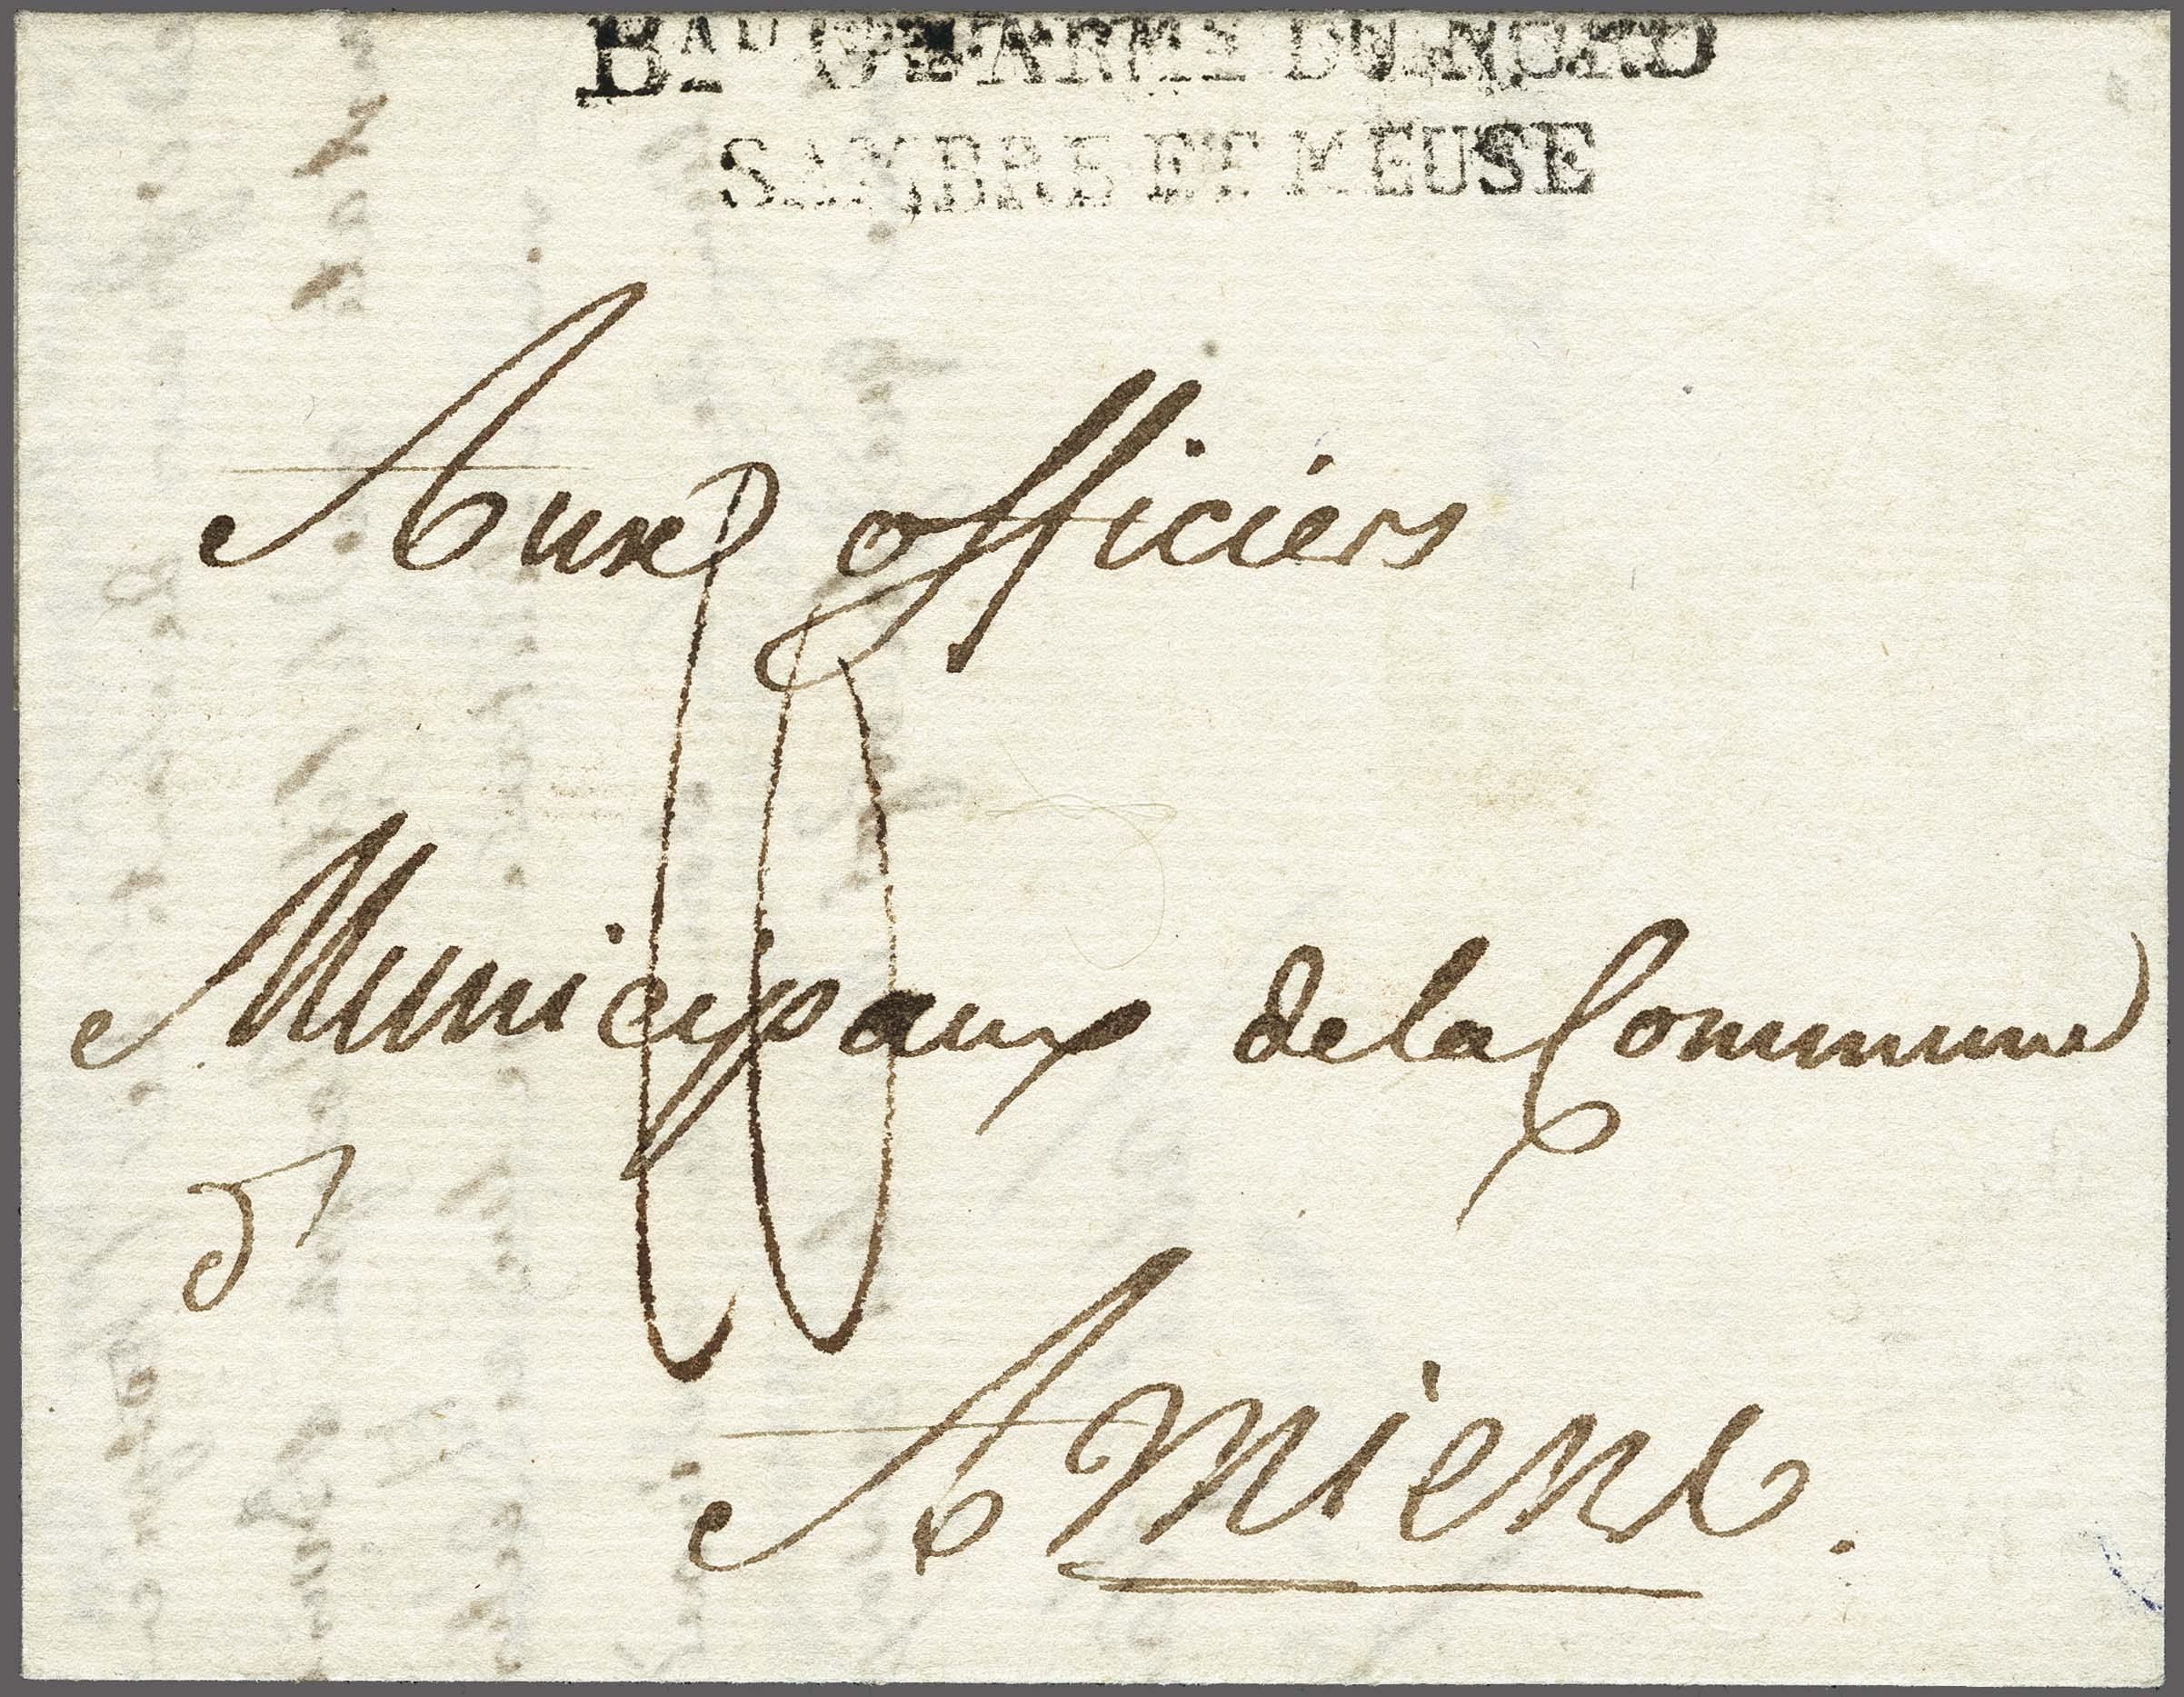 BAU GL ARME DU NORD
SAMBRE ET MEUSE
Aux officiers
Municipaux de la Commune
d'
Amiens.